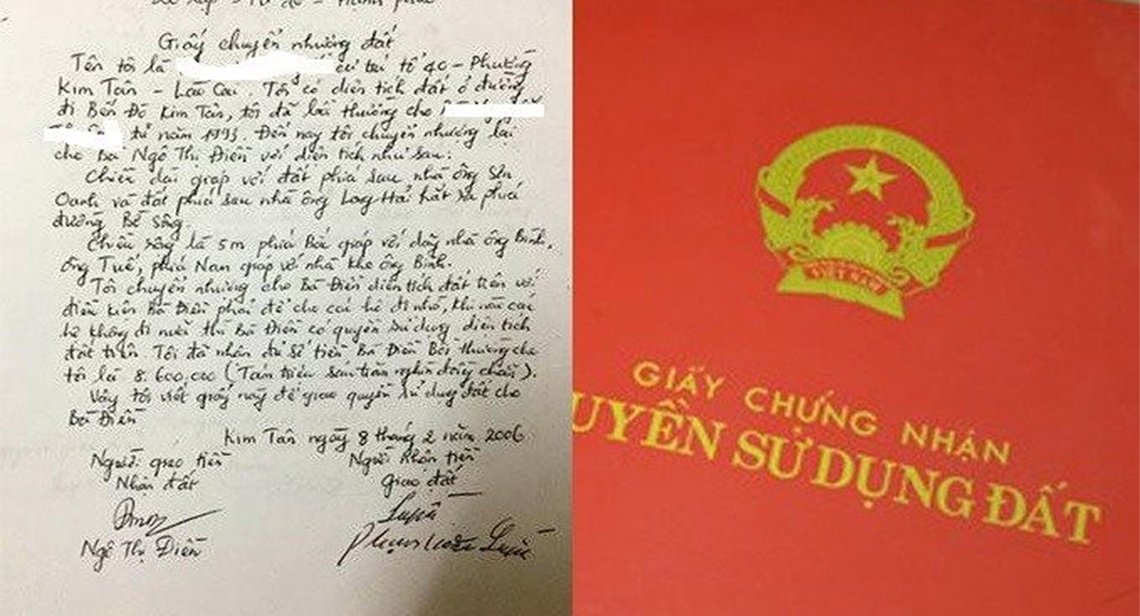 Độc lập - Tự do - Hạnh phúc
Giấy chuyển nhượng đất
Tên tôi là cư trú tổ 40 - Phường
Kim Tân - Lào Cai. Tôi có diện tích đất ở đường
đi Bến Đò Kim Tân, tôi đã bồi thường cho
từ năm 1993. Đến nay tôi chuyển nhượng lại
cho Bà Ngô Thị Điền với diện tích như sau:
Chiều dài giáp với đất phía sau nhà ông Sơn
Oanh và đất phía sau nhà ông Long Hải hắt ra phía
đường Bờ Sông.
Chiều rộng là 5m phía Bắc giáp với dãy nhà ông Bính,
ông Tuế, phía Nam giáp với nhà kho ông Bính.
Tôi chuyển nhượng cho Bà Điền diện tích đất trên với
điều kiện Bà Điền phải để cho các hộ đi nhờ, khi nào các
hộ không đi nữa thì Bà Điền có quyền sử dụng diện tích
đất trên. Tôi đã nhận đủ số tiền Bà Điền Bồi thường cho
tôi là 8.600.000 (Tám triệu sáu trăm nghìn đồng chẵn).
Vậy tôi viết giấy này để giao quyền sử dụng đất cho
Bà Điền
Kim Tân ngày 8 tháng 2 năm 2006
Người giao tiền Người nhận tiền
Nhận đất giao đất
Ngô Thị Điền
VIỆT NAM
GIẤY CHỨNG NHẬN
UYỀN SỬ DỤNG ĐẤT